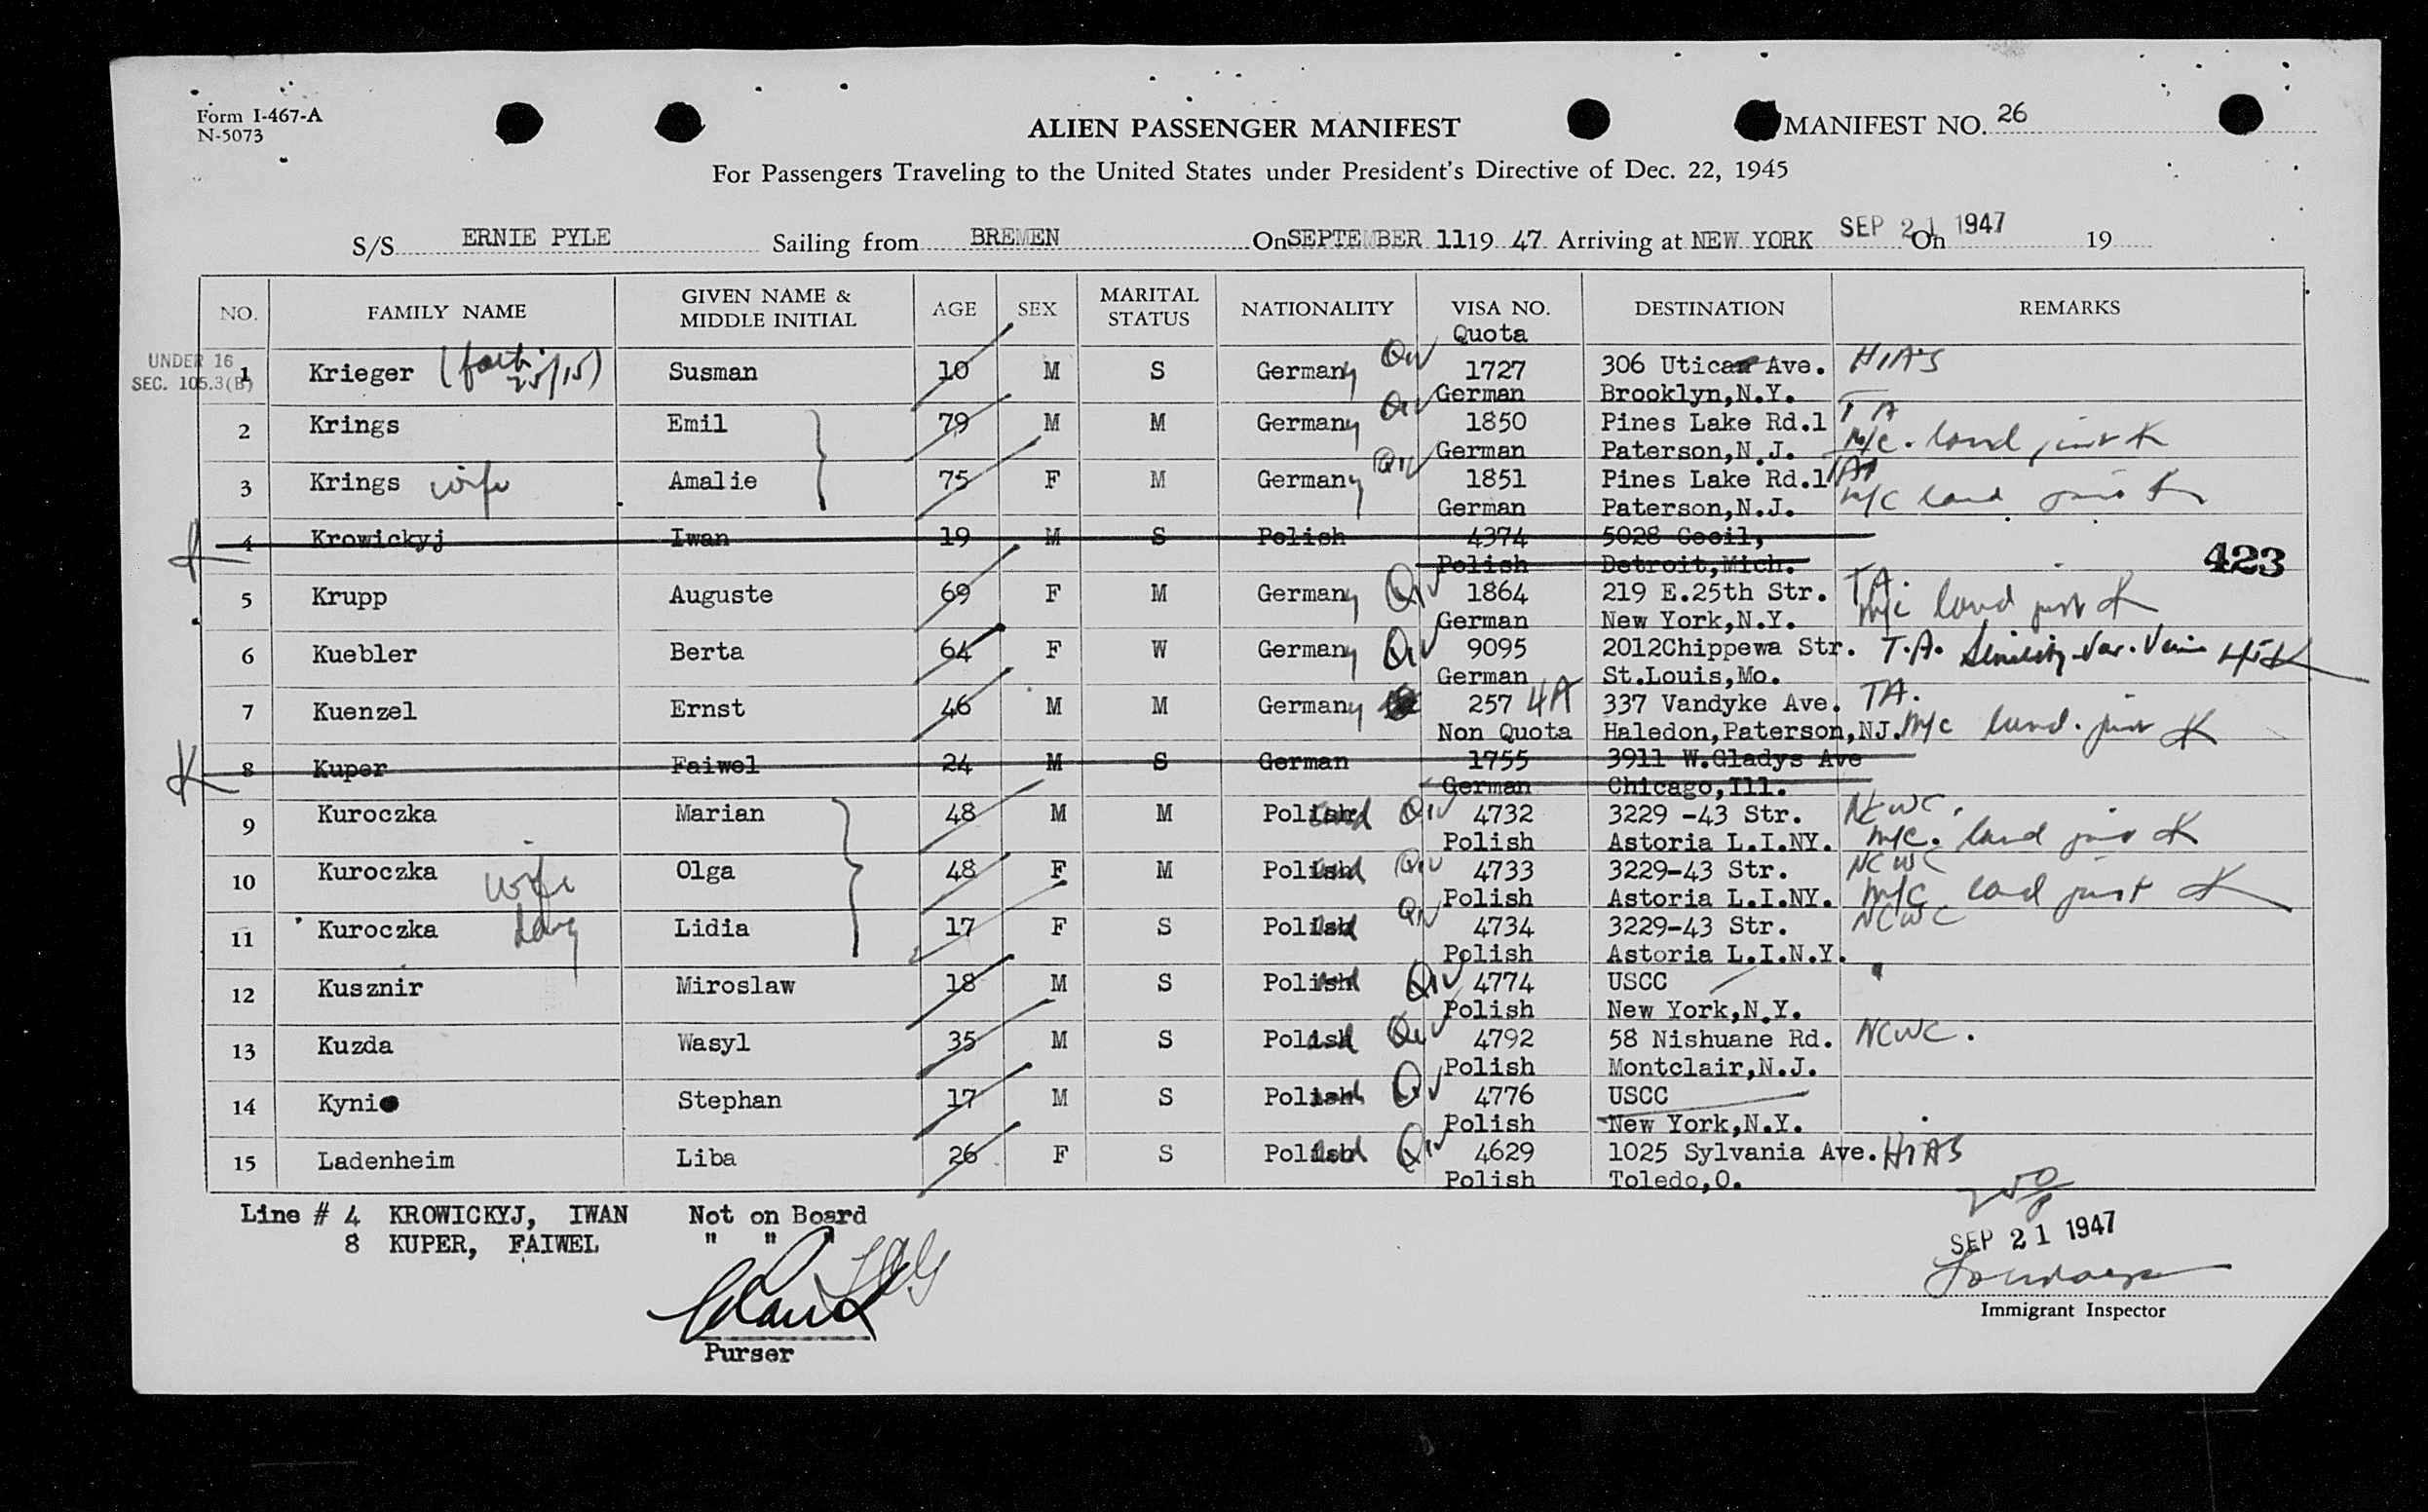 Form I-467-A
N-5073
ALIEN PASSENGER MANIFEST
MANIFEST NO. 26
For Passengers Traveling to the United States under President's Directive of Dec. 22, 1945
S/S ERNIE PYLE Sailing from BREMEN On SEPTEMBER 11 19 47 Arriving at NEW YORK On SEP 21 1947 19
NO. FAMILY NAME GIVEN NAME & MIDDLE INITIAL AGE SEX MARITAL STATUS NATIONALITY VISA NO. DESTINATION REMARKS
Quota
UNDER 16
SEC. 105.3(B)
1 Krieger Susman 10 M S Germany QIV 1727 306 Utica Ave. HIAS
German Brooklyn,N.Y.
2 Krings Emil 79 M M Germany QIV 1850 Pines Lake Rd.1 TA
German Paterson,N.J. M/C. land just K
3 Krings wife Amalie 75 F M Germany QIV 1851 Pines Lake Rd.1 TA
German Paterson,N.J. M/C land just K
4 Krowickyj Iwan 19 M S Polish 4374 5028 Cecil,
Polish Detroit,Mich.
423
5 Krupp Auguste 69 F M Germany QIV 1864 219 E.25th Str. TA.
German New York,N.Y. M/C land just K
6 Kuebler Berta 64 F W Germany QIV 9095 2012Chippewa Str. T.A. Senility Var. Vein K
German St.Louis,Mo.
7 Kuenzel Ernst 46 M M Germany 257 4A 337 Vandyke Ave. TA.
Non Quota Haledon,Paterson,NJ. M/C land. just K
K 8 Kuper Faiwel 24 M S German 1755 3911 W.Gladys Ave
German Chicago,Ill.
9 Kuroczka Marian 48 M M Poland QIV 4732 3229 -43 Str. NCWC.
Polish Astoria L.I.NY. M/C. land just K
10 Kuroczka wife Olga 48 F M Poland QIV 4733 3229-43 Str. NCWC
Polish Astoria L.I.NY. M/C land just K
11 Kuroczka daug Lidia 17 F S Poland QIV 4734 3229-43 Str. NCWC
Polish Astoria L.I.N.Y.
12 Kusznir Miroslaw 18 M S Poland QIV 4774 USCC
Polish New York,N.Y.
13 Kuzda Wasyl 35 M S Poland QIV 4792 58 Nishuane Rd. NCWC.
Polish Montclair,N.J.
14 Kyni Stephan 17 M S Poland QIV 4776 USCC
Polish New York,N.Y.
15 Ladenheim Liba 26 F S Poland QIV 4629 1025 Sylvania Ave. HIAS
Polish Toledo,O.
Line # 4 KROWICKYJ, IWAN Not on Board
8 KUPER, FAIWEL " " "
SEP 21 1947
Immigrant Inspector
Purser